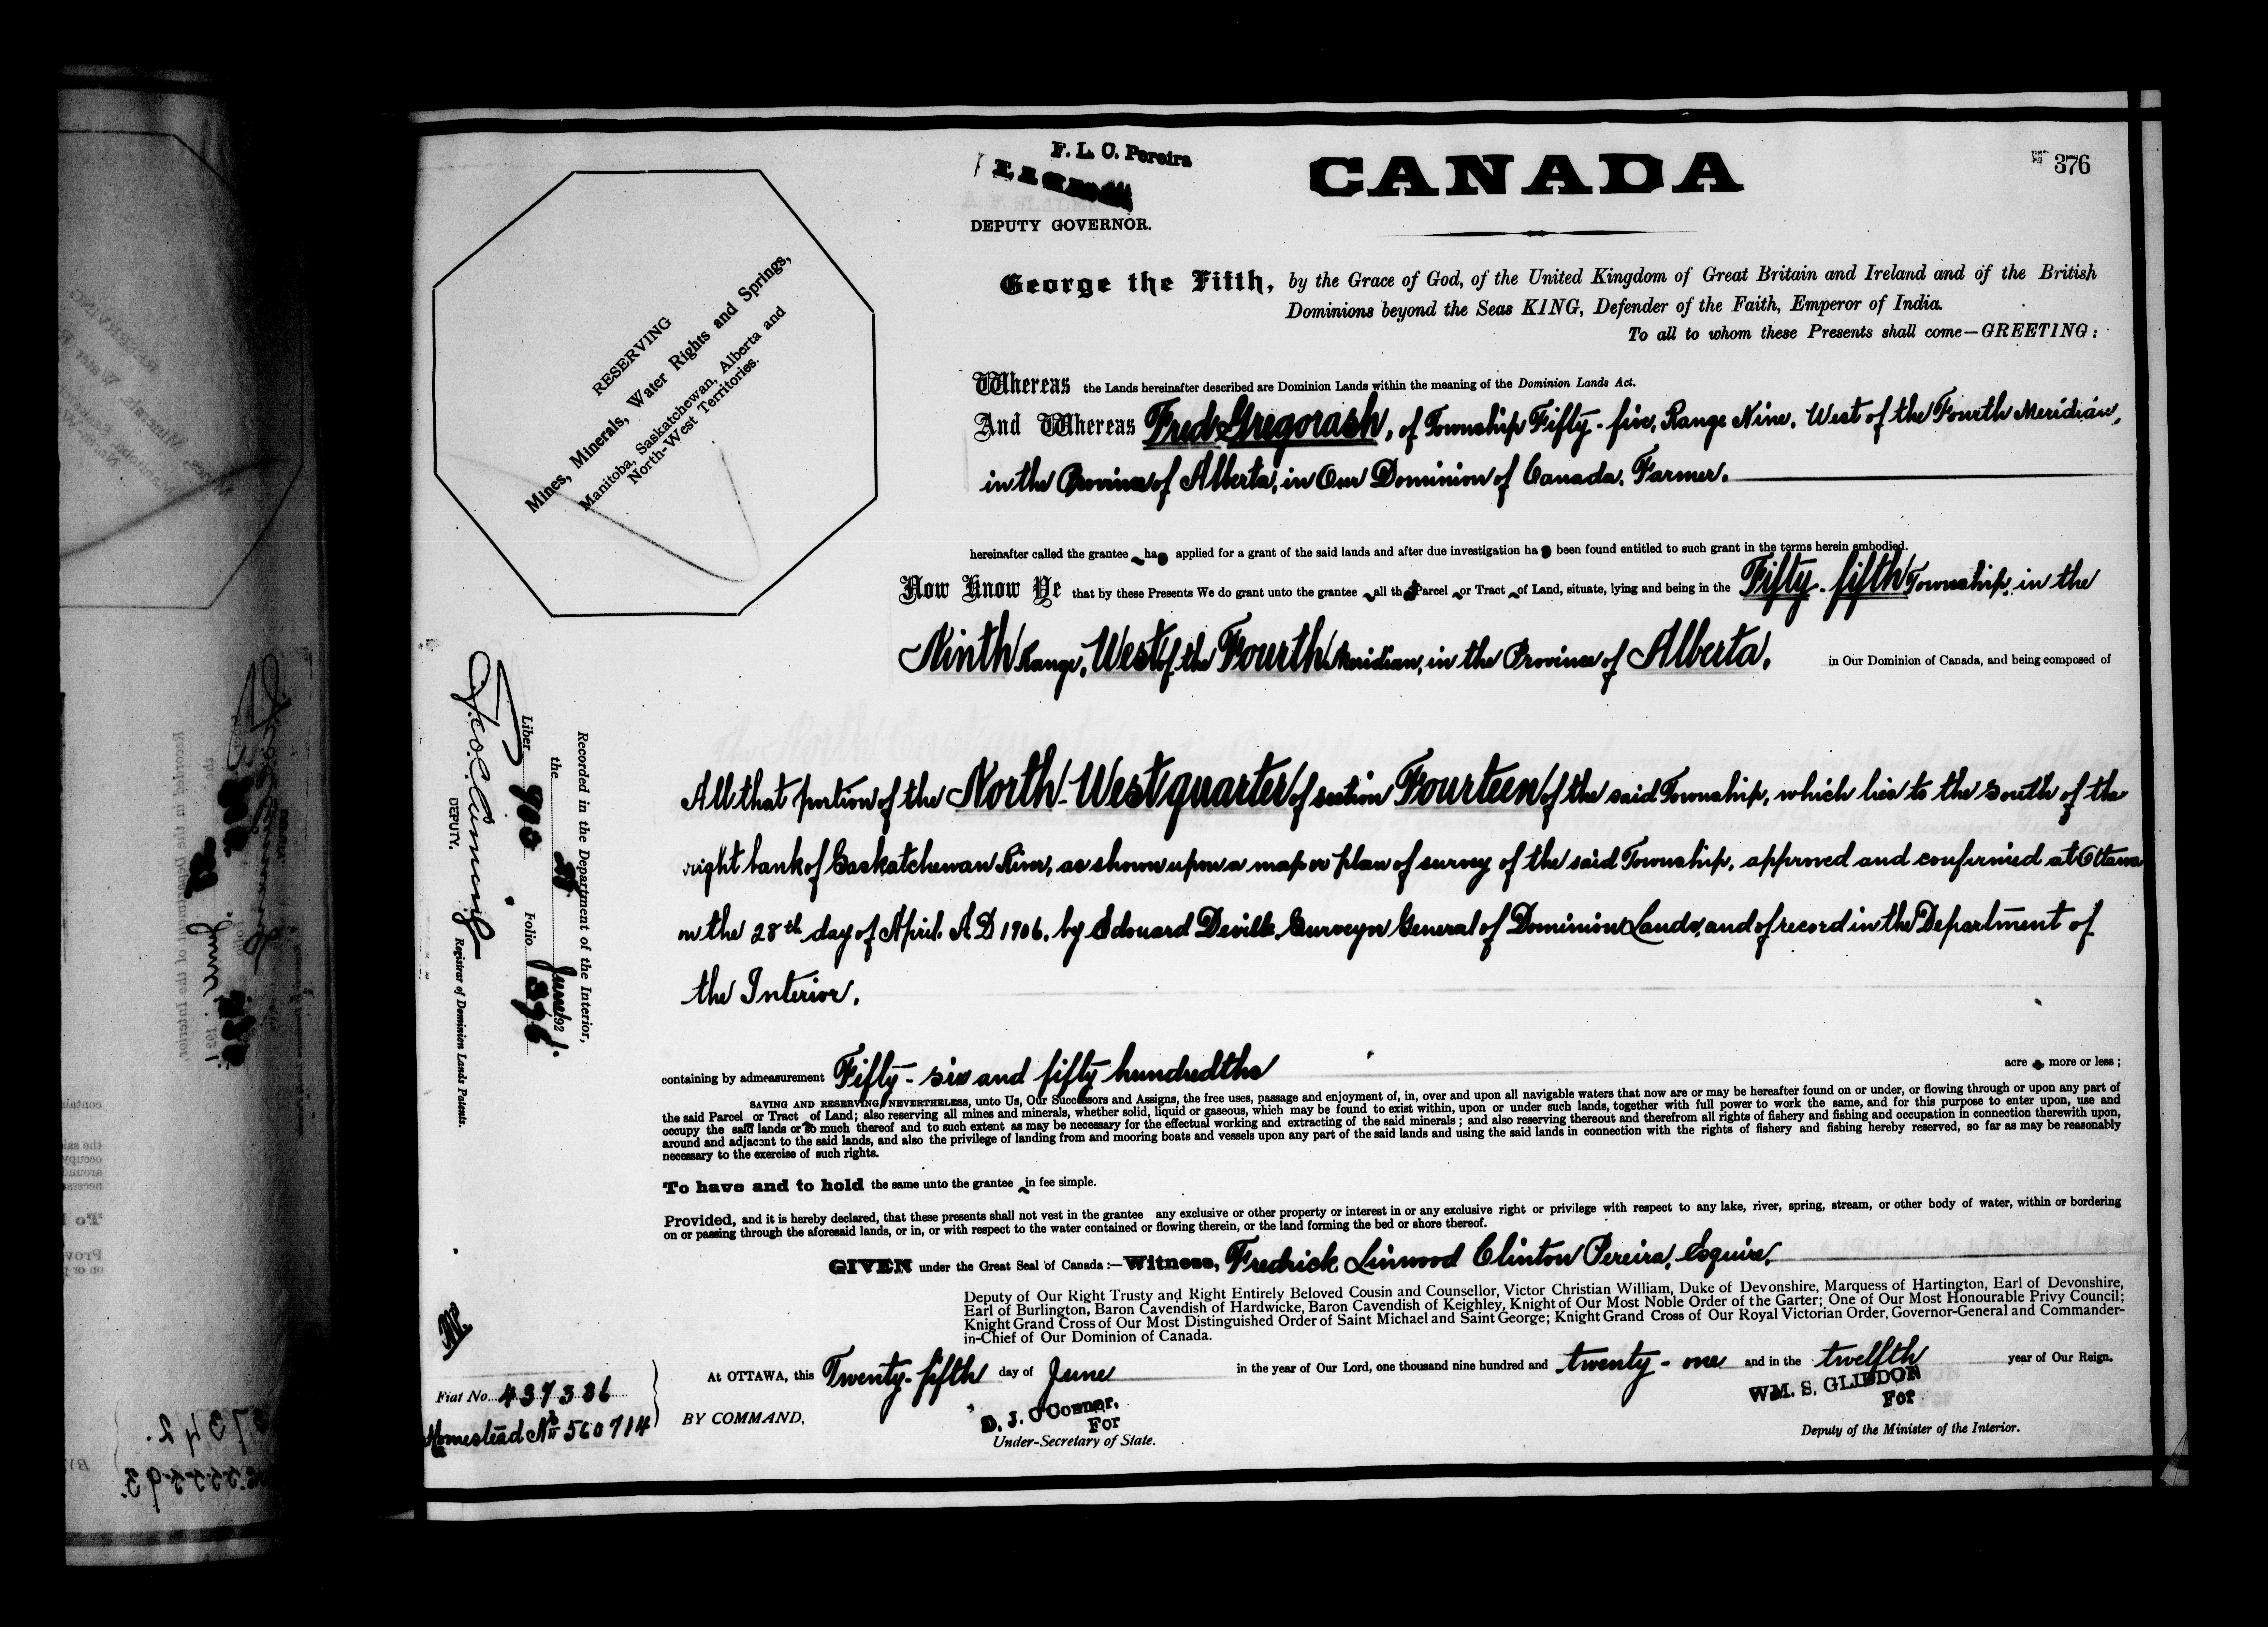 F. L. C. Pereira
DEPUTY GOVERNOR.
CANADA
376
RESERVING
Mines, Minerals, Water Rights and Springs,
Manitoba, Saskatchewan, Alberta and
North-West Territories.
George the Fifth, by the Grace of God, of the United Kingdom of Great Britain and Ireland and of the British
Dominions beyond the Seas KING, Defender of the Faith, Emperor of India.
To all to whom these Presents shall come—GREETING:
Whereas the Lands hereinafter described are Dominion Lands within the meaning of the Dominion Lands Act.
And Whereas Fred Gregorash, of Township Fifty-five, Range Nine, West of the Fourth Meridian,
in the Province of Alberta, in Our Dominion of Canada, Farmer.
hereinafter called the grantee has applied for a grant of the said lands and after due investigation has been found entitled to such grant in the terms herein embodied.
Now Know Ye that by these Presents We do grant unto the grantee all that Parcel or Tract of Land, situate, lying and being in the Fifty-fifth Township, in the
Ninth Range, West of the Fourth Meridian, in the Province of Alberta, in Our Dominion of Canada, and being composed of
All that portion of the North-West quarter of section Fourteen of the said Township, which lies to the South of the
right bank of Saskatchewan River, as shown upon a map or plan of survey of the said Township, approved and confirmed at Ottawa
on the 28th day of April, A D 1906, by Edouard Deville, Surveyor General of Dominion Lands, and of record in the Department of
the Interior.
containing by admeasurement Fifty-six and fifty hundredths acre more or less;
SAVING AND RESERVING, NEVERTHELESS, unto Us, Our Successors and Assigns, the free uses, passage and enjoyment of, in, over and upon all navigable waters that now are or may be hereafter found on or under, or flowing through or upon any part of
the said Parcel or Tract of Land; also reserving all mines and minerals, whether solid, liquid or gaseous, which may be found to exist within, upon or under such lands, together with full power to work the same, and for this purpose to enter upon, use and
occupy the said lands or so much thereof and to such extent as may be necessary for the effectual working and extracting of the said minerals; and also reserving thereout and therefrom all rights of fishery and fishing and occupation in connection therewith upon,
around and adjacent to the said lands, and also the privilege of landing from and mooring boats and vessels upon any part of the said lands and using the said lands in connection with the rights of fishery and fishing hereby reserved, so far as may be reasonably
necessary to the exercise of such rights.
To have and to hold the same unto the grantee in fee simple.
Provided, and it is hereby declared, that these presents shall not vest in the grantee any exclusive or other property or interest in or any exclusive right or privilege with respect to any lake, river, spring, stream, or other body of water, within or bordering
on or passing through the aforesaid lands, or in, or with respect to the water contained or flowing therein, or the land forming the bed or shore thereof.
GIVEN under the Great Seal of Canada:—Witness, Fredrick Linwood Clinton Pereira, Esquire,
Deputy of Our Right Trusty and Right Entirely Beloved Cousin and Counsellor, Victor Christian William, Duke of Devonshire, Marquess of Hartington, Earl of Devonshire,
Earl of Burlington, Baron Cavendish of Hardwicke, Baron Cavendish of Keighley, Knight of Our Most Noble Order of the Garter; One of Our Most Honourable Privy Council;
Knight Grand Cross of Our Most Distinguished Order of Saint Michael and Saint George; Knight Grand Cross of Our Royal Victorian Order, Governor-General and Commander-
in-Chief of Our Dominion of Canada.
At OTTAWA, this Twenty-fifth day of June in the year of Our Lord, one thousand nine hundred and twenty-one and in the twelfth year of Our Reign.
BY COMMAND,
D. J. O'Connor,
For
Under-Secretary of State.
WM. S. GLIDDON
For
Deputy of the Minister of the Interior.
Recorded in the Department of the Interior,
the June 1921.
Liber 900 Folio 376
DEPUTY. Registrar of Dominion Lands Patents.
Fiat No. 437336
Homestead No 560714